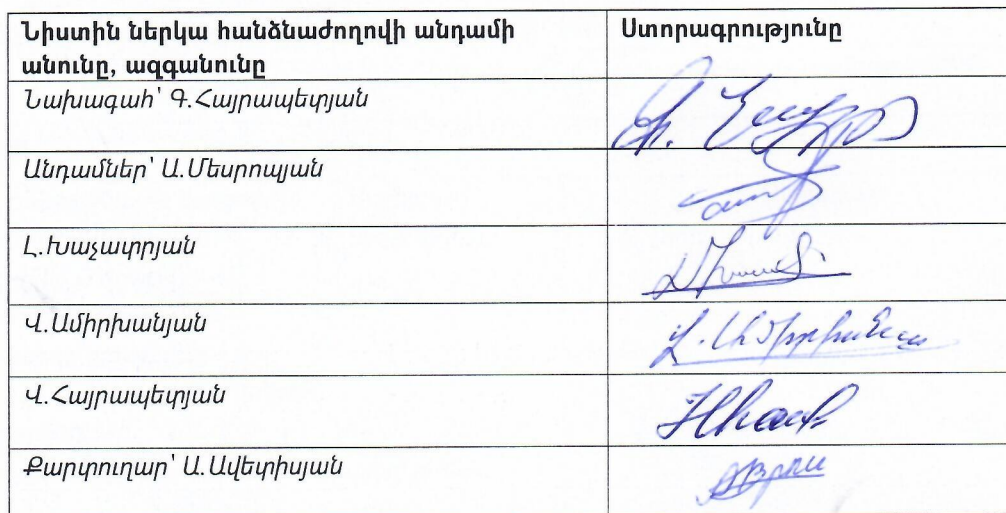 Նիստին ներկա հանձնաժողովի անդամի
անունը, ազգանունը
Ստորագրությունը
Նախագահ՝ Գ.Հայրապետյան
Անդամներ՝ Ա.Մեսրոպյան
Լ.Խաչատրյան
Վ.Ամիրխանյան
Վ.Հայրապետյան
Քարտուղար՝ Ա.Ավետիսյան